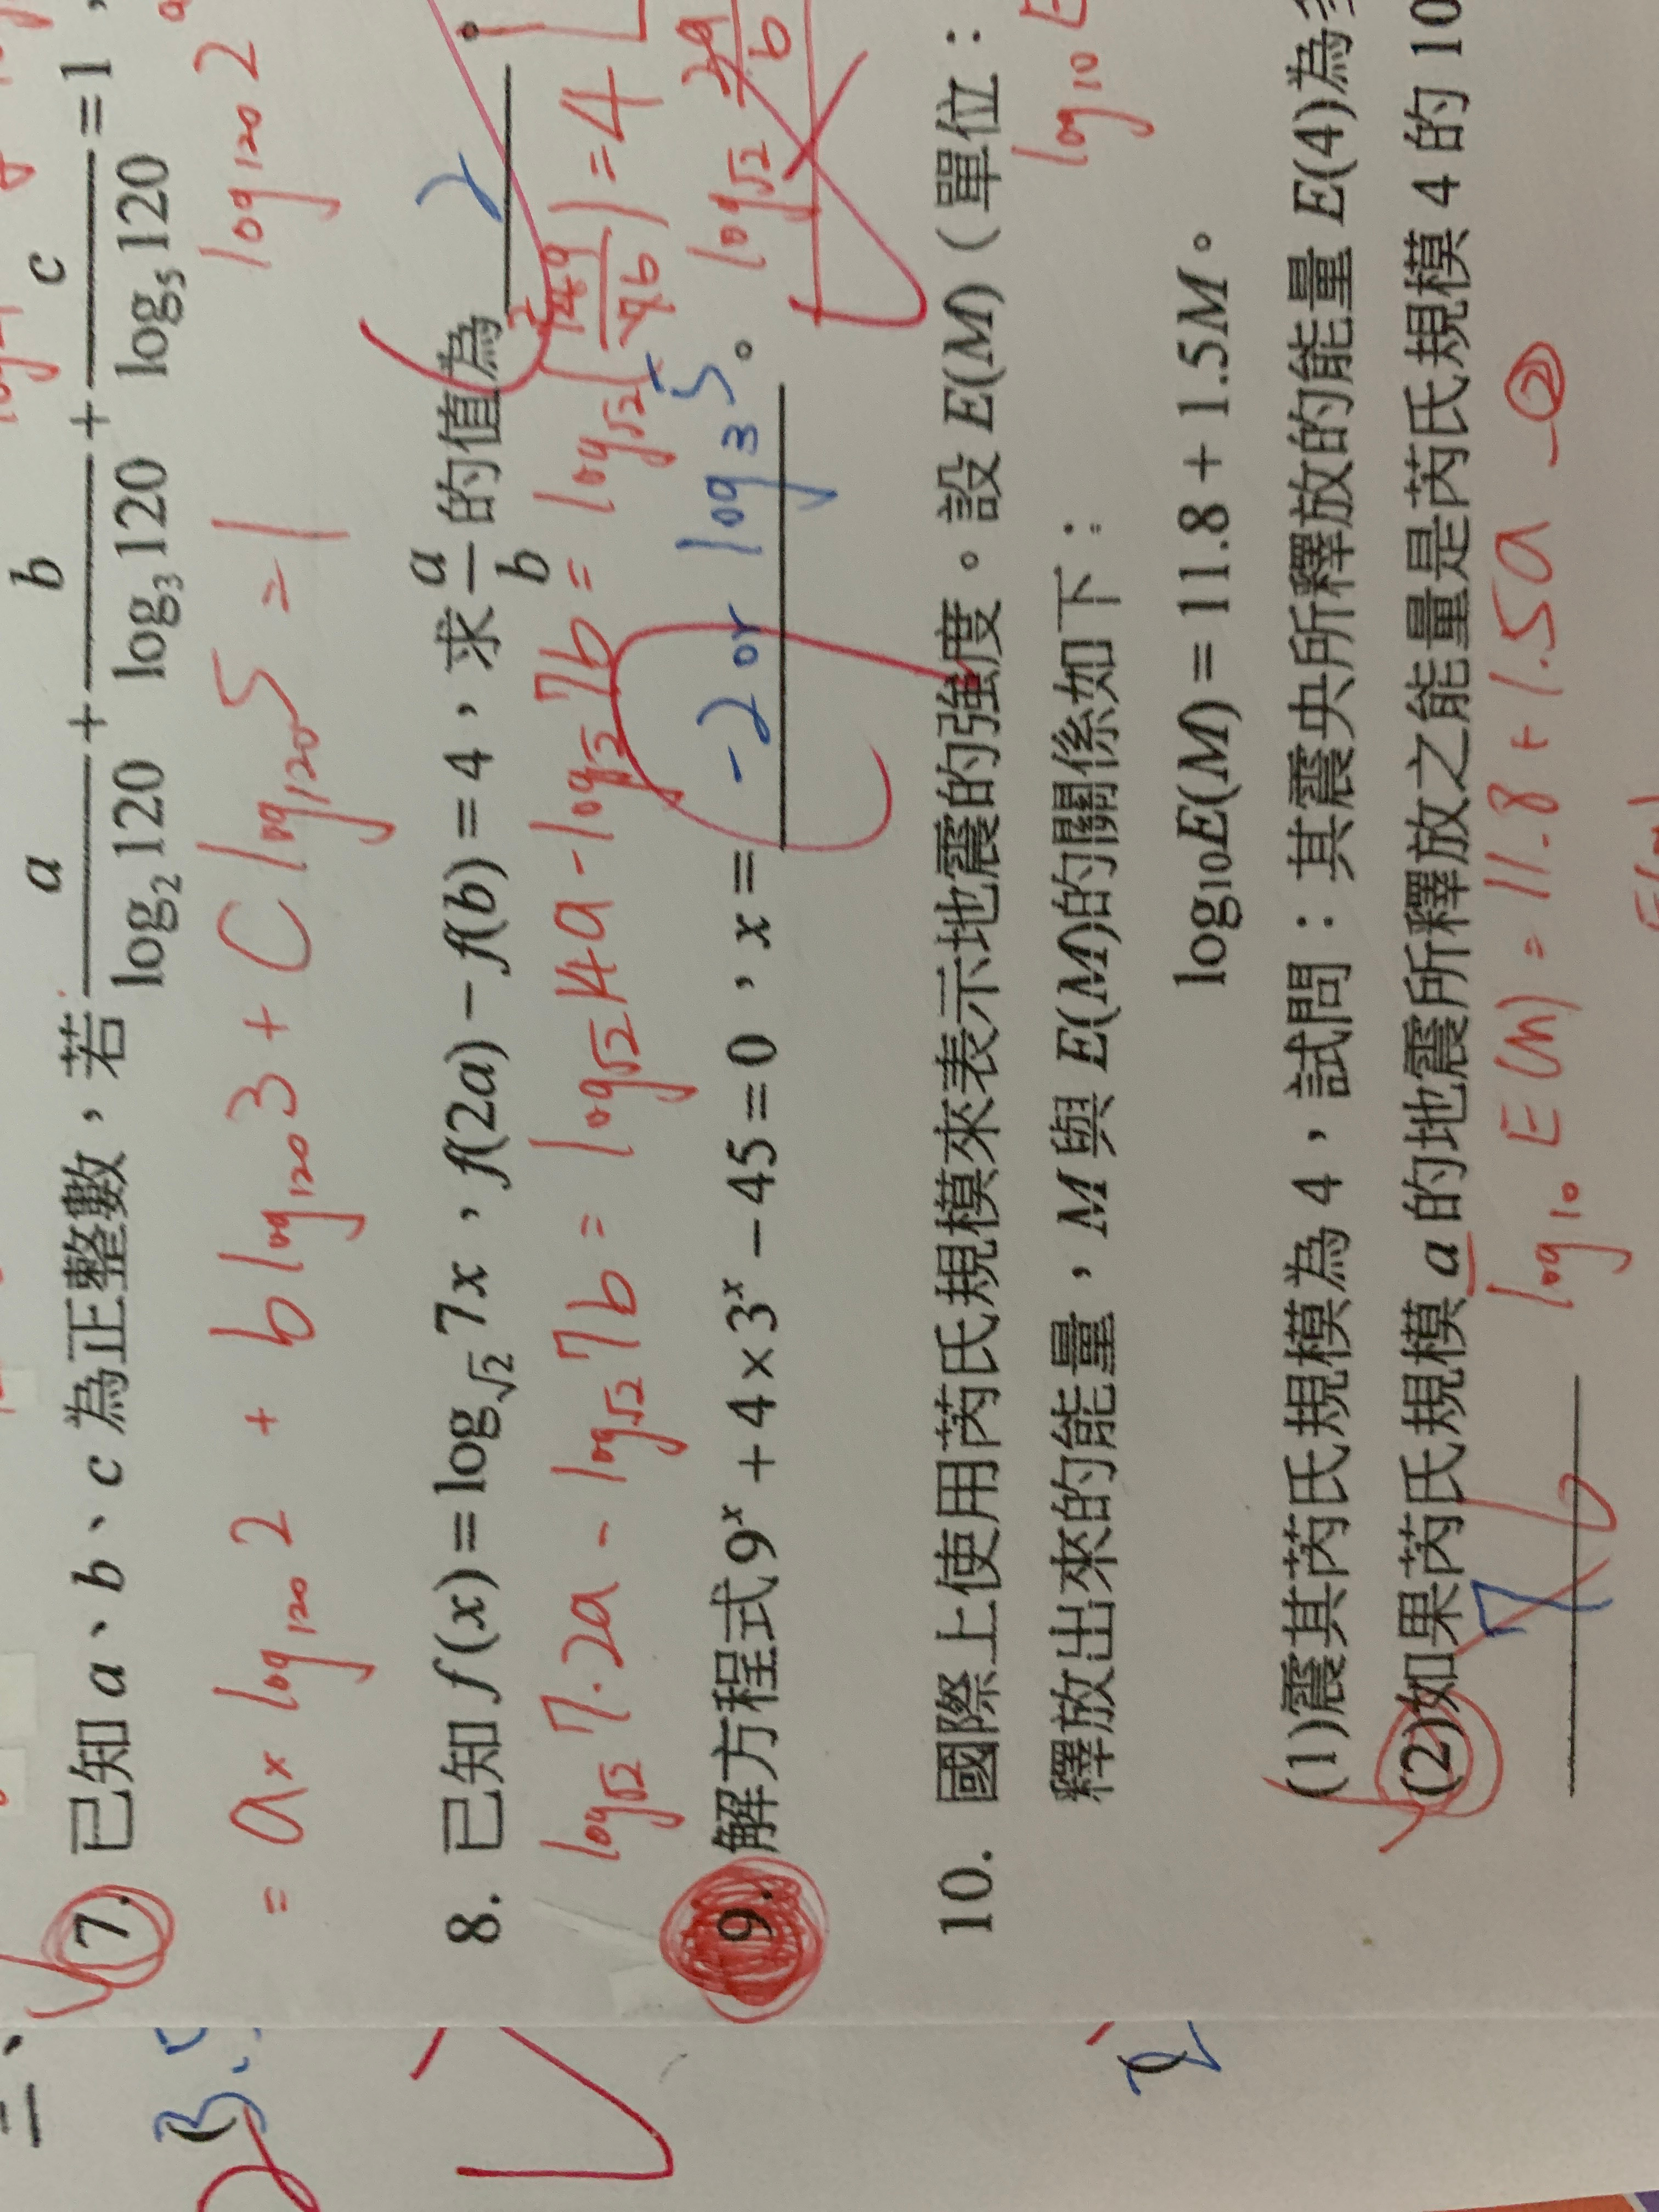 7. 已知 a、b、c 為正整數，若 a/log₂120 + b/log₃120 + c/log₅120 = 1，
= a× log₁₂₀2 + b log₁₂₀3 + C log₁₂₀5 = 1
log₁₂₀2
8. 已知 f(x) = log√2 7x，f(2a) − f(b) = 4，求 a/b 的值為 2 。
log√2 7·2a - log√2 7b = log√2 14a - log√2 7b = log√2 (14a/7b) = 4
log√2 2a/b
9. 解方程式 9ˣ + 4 × 3ˣ − 45 = 0，x = -2 or log₃5 。
10. 國際上使用芮氏規模來表示地震的強度。設 E(M)（單位：
釋放出來的能量，M 與 E(M)的關係如下：
log₁₀
log₁₀E(M) = 11.8 + 1.5M。
(1)震其芮氏規模為 4，試問：其震央所釋放的能量 E(4)為
(2)如果芮氏規模 a 的地震所釋放之能量是芮氏規模 4 的 10
log₁₀ E(M) = 11.8 + 1.5a -②
7 6